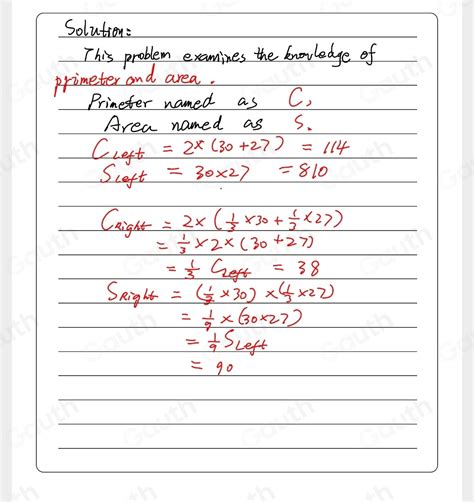 Solution:
This problem examines the knowledge of
primeter and area.
Primeter named as C,
Area named as S.
C_Left = 2×(30+27) = 114
S_Left = 30×27 = 810
C_Right = 2×(1/3×30+1/3×27)
= 1/3×2×(30+27)
= 1/3 C_Left = 38
S_Right = (1/3×30)×(1/3×27)
= 1/9×(30×27)
= 1/9 S_Left
= 90